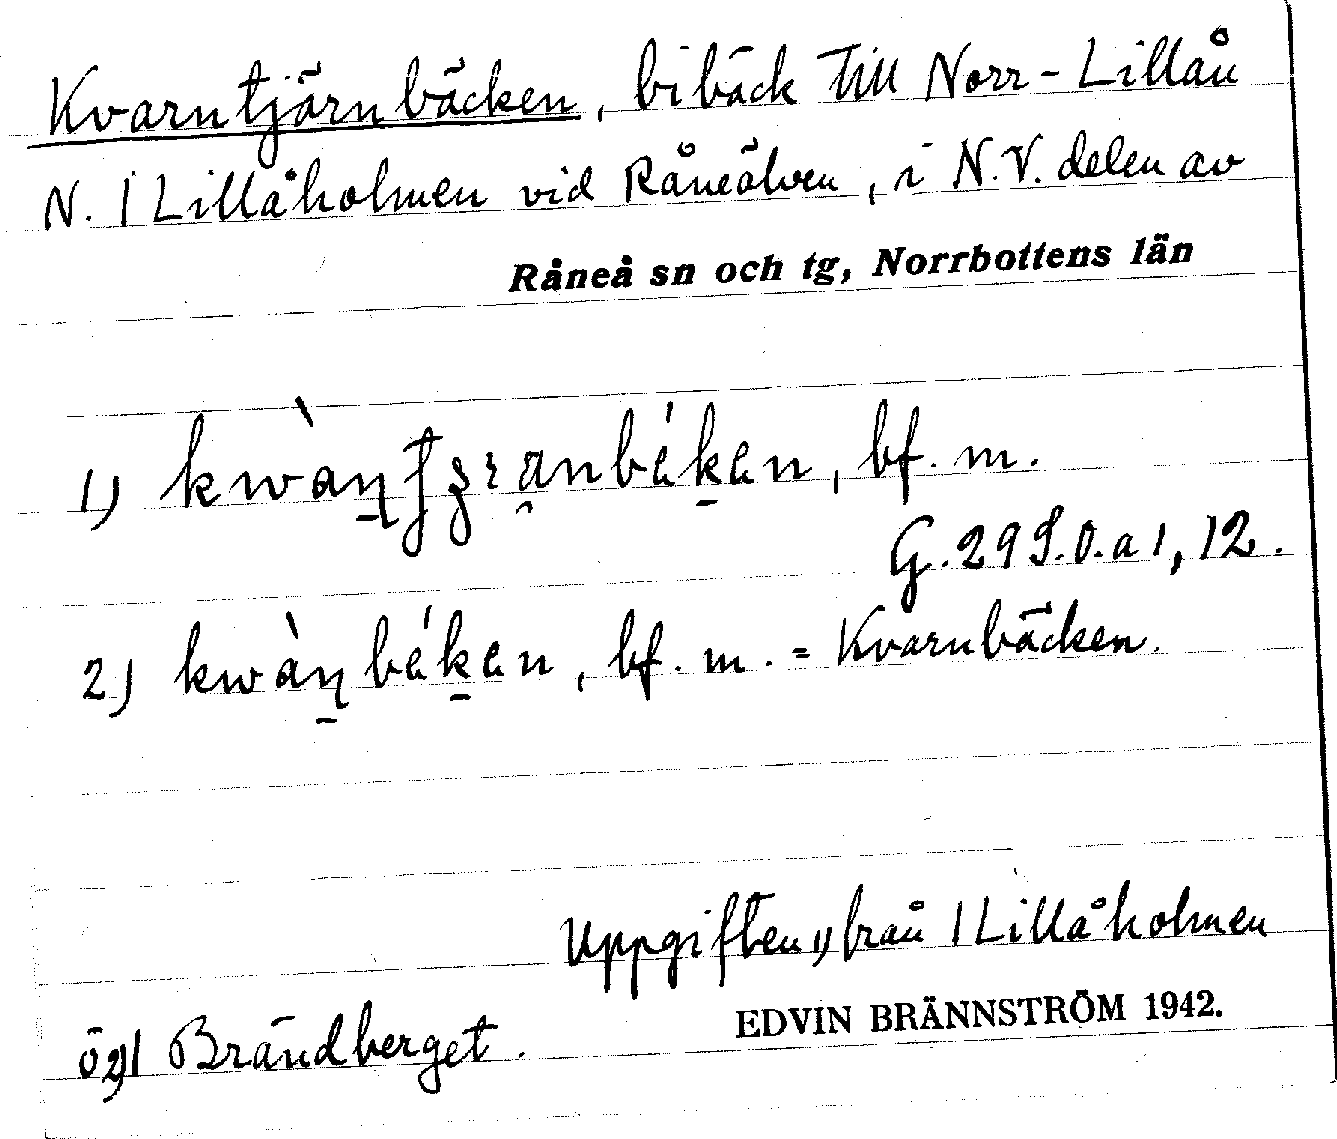 Kvarntjärnbäcken, bibäck till Norr-Lillån
N. / Lillåholmen vid Råneälven, i N.V. delen av
Råneå sn och tg, Norrbottens län
1) bf. m.
G. 29 S.O. a 1, 12.
2) bf. m. = Kvarnbäcken.
Uppgiften 1) från / Lillåholmen
2) / Brändberget.
EDVIN BRÄNNSTRÖM 1942.